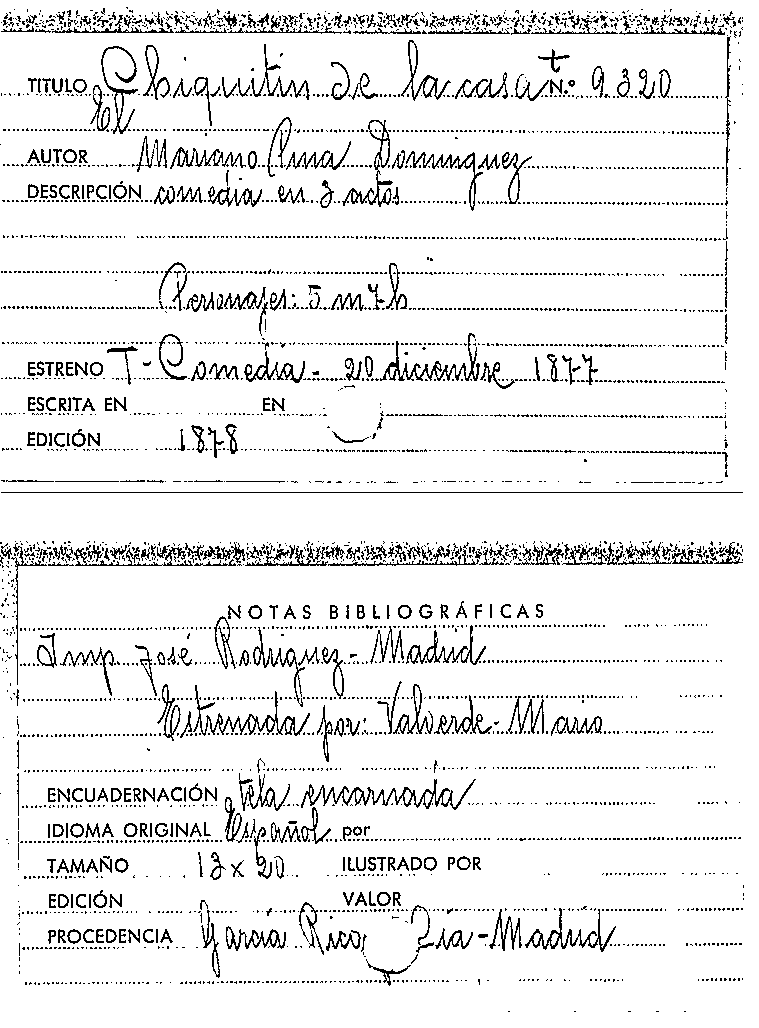 TITULO Chiquitín de la casa t N.º 9.320
El
AUTOR Mariano Pina Dominguez
DESCRIPCIÓN comedia en 3 actos
Personajes: 5 m 7 h
ESTRENO T - Comedia - 20 diciembre 1877
ESCRITA EN EN
EDICIÓN 1878
NOTAS BIBLIOGRÁFICAS
Imp. José Rodriguez - Madrid
Estrenada por: Valverde - Mario
ENCUADERNACIÓN tela encarnada
IDIOMA ORIGINAL Español por
TAMAÑO 13 x 20 ILUSTRADO POR
EDICIÓN VALOR
PROCEDENCIA García Rico - Madrid